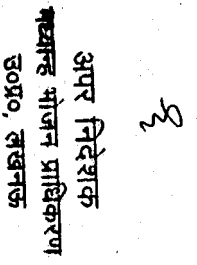 अपर निदेशक
मध्यान्ह भोजन प्राधिकरण
उ०प्र०, लखनऊ